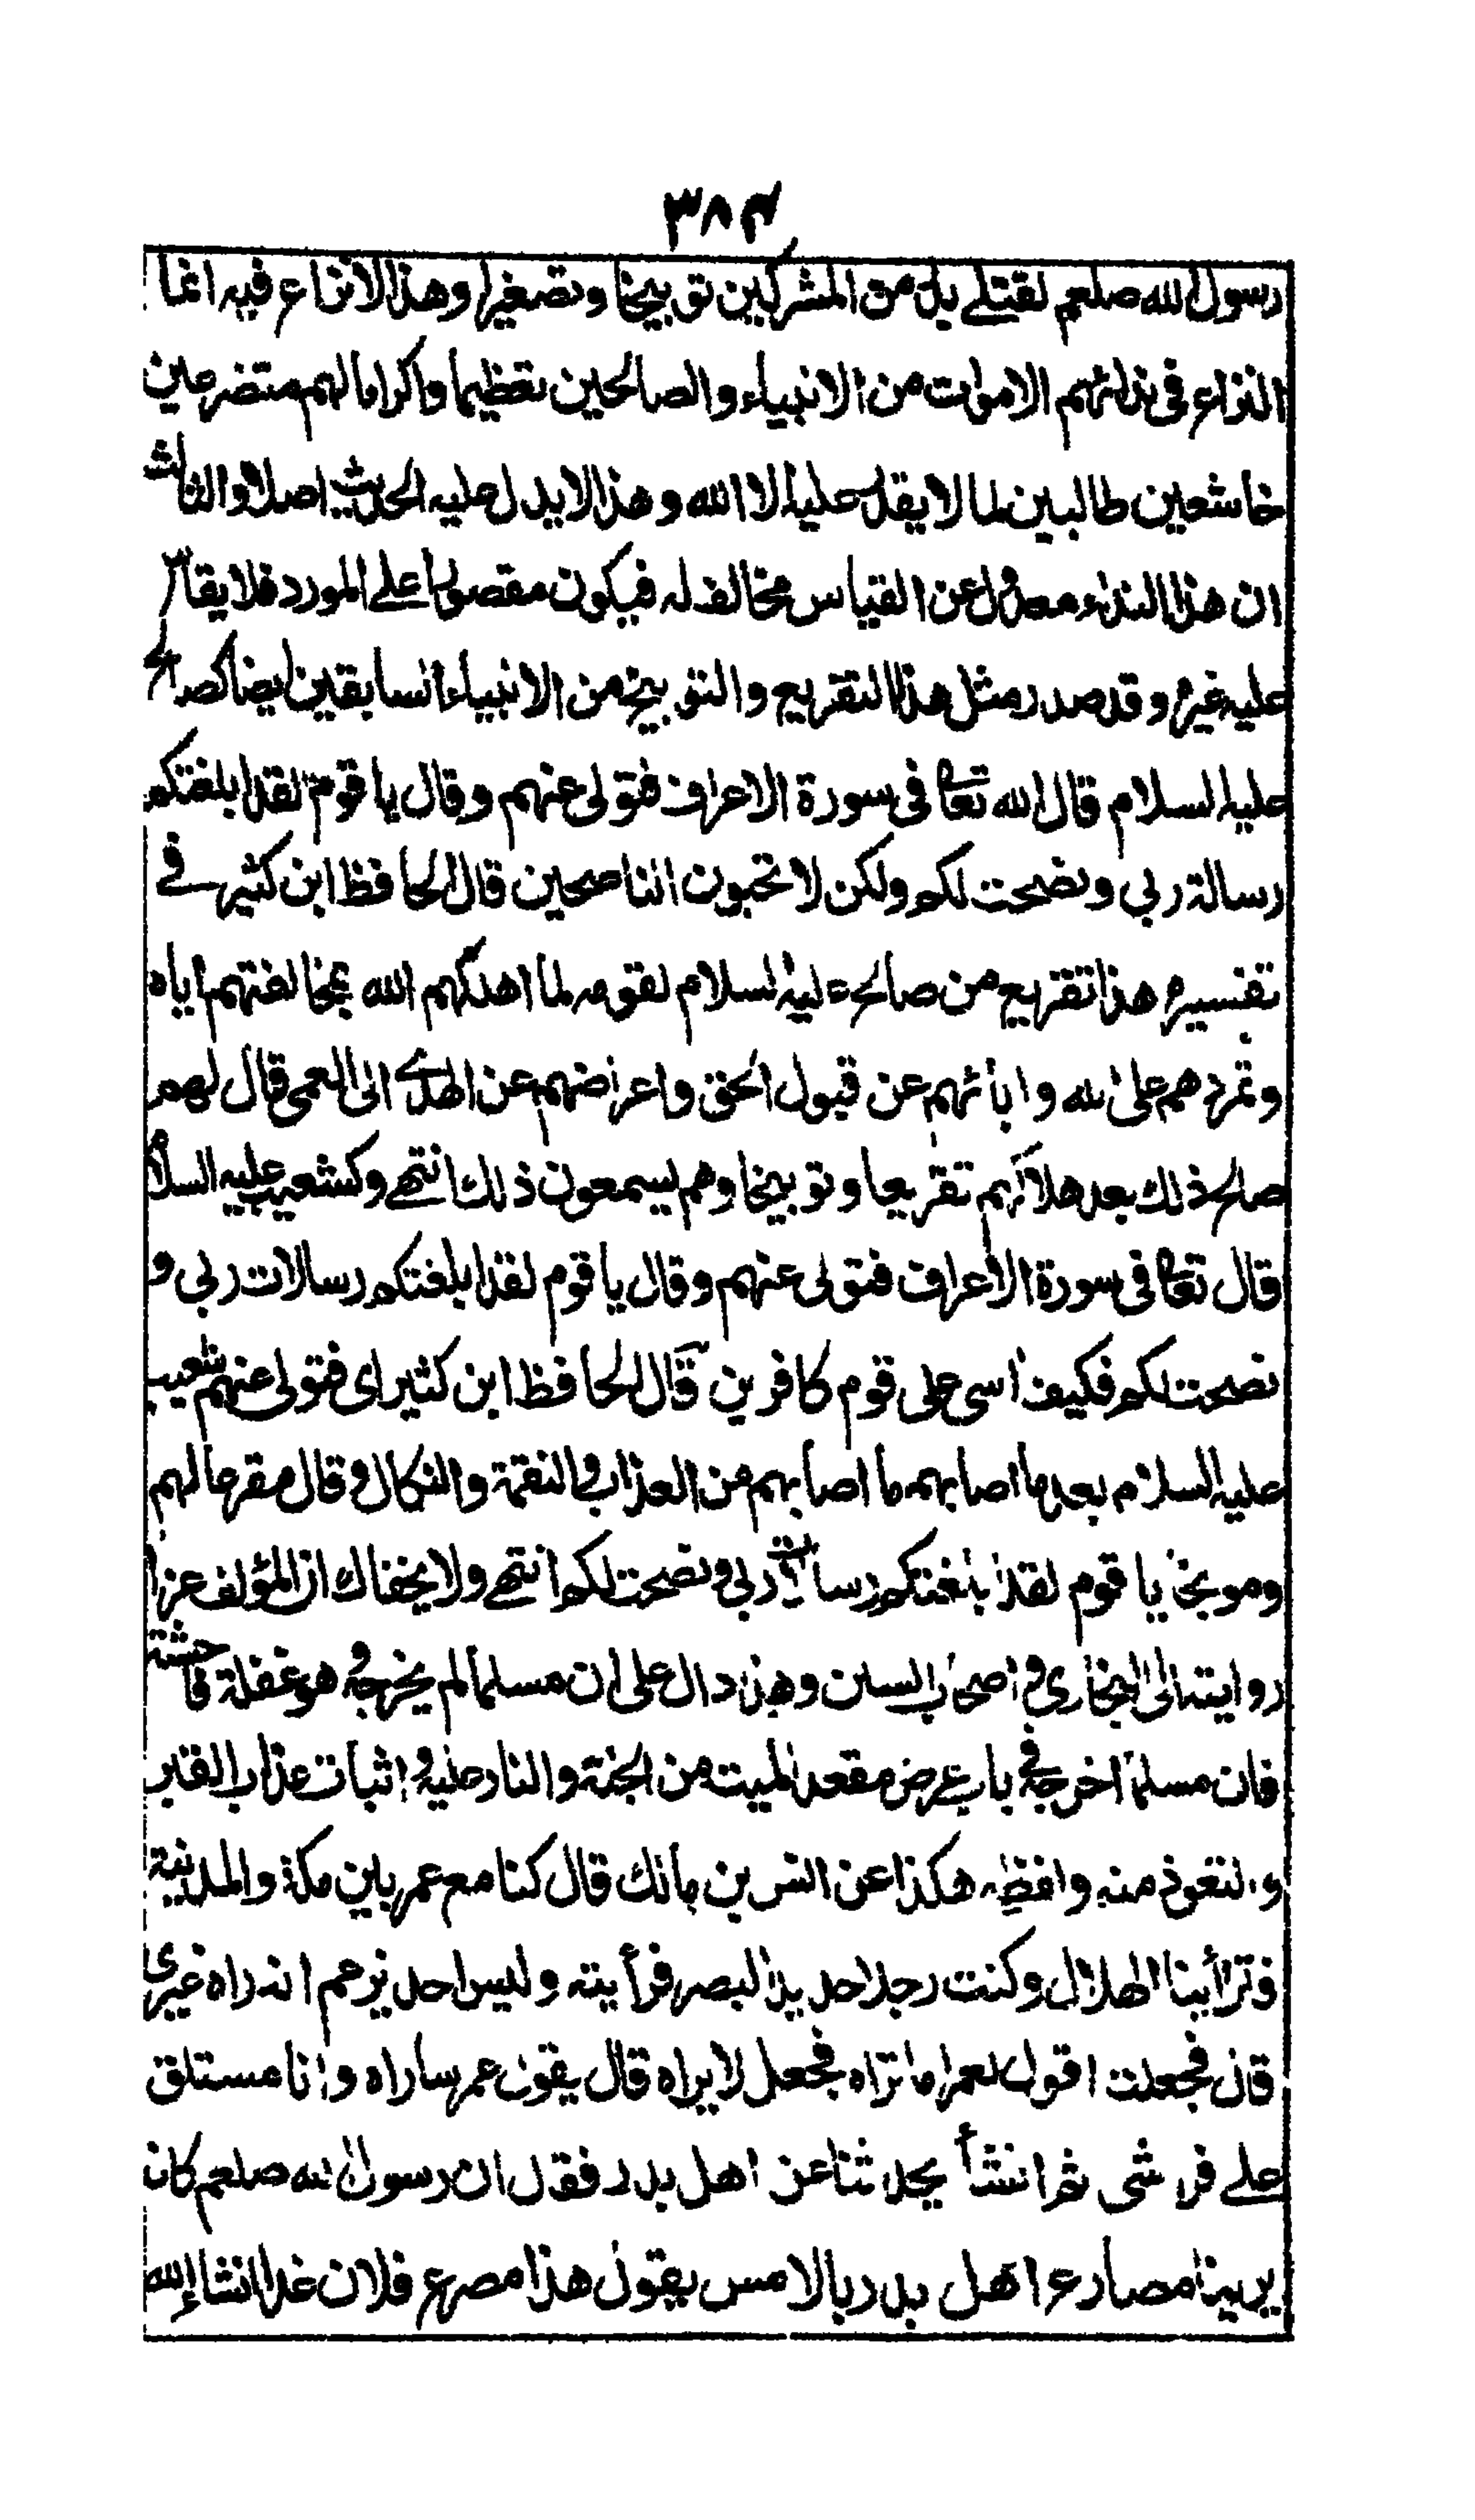 ٣٨٤
رسول الله صلعم لقتلى بدر من المشركين توبيخا وتصغيرا وهذا لا نزاع فيه انما
النزاع فى ندائهم الاموات من الانبياء والصالحين تعظيما واكراما لهم متضرعين
خاشعين طالبين لما لا يقدر عليه الا الله وهذا لا يدل عليه الحديث اصلا والثالث
ان هذا النداء معدول عن القياس مخالف له فيكون مقصورا على المورد فلا يقاس
عليه غيره وقد صدر مثل هذا التقريع والتوبيخ من الانبياء السابقين ايضا كصالح
عليه السلام قال الله تعالى فى سورة الاعراف فتولى عنهم وقال يا قوم لقد ابلغتكم
رسالة ربي ونصحت لكم ولكن لا تحبون الناصحين قال الحافظ ابن كثير فے
تفسيره هذا تقريع من صالح عليه السلام لقومه لما اهلكهم الله بمخالفتهم اياه
وتمردهم على الله وابائهم عن قبول الحق واعراضهم عن الهدى الى العمى قال لهم
صالح ذلك بعد هلاكهم تقريعا وتوبيخا وهم يسمعون ذلك انتهے وكشعيب عليه السلام
قال تعالى فى سورة الاعراف فتولى عنهم وقال يا قوم لقد ابلغتكم رسالات ربى و
نصحت لكم فكيف اسى على قوم كافرين قال الحافظ ابن كثير اى فتولى عنهم شعيب
عليه السلام بعد ما اصابهم ما اصابهم من العذاب والنقمة والنكال وقال مقرعا لهم
وموبخا يا قوم لقد ابلغتكم رسالات ربى ونصحت لكم انتهے ولا يخفاك ان المؤلف عزا
روايته الى البخارى و اصحاب السنن وهذا دال على ان مسلما لم يخرجه وهو غفلة فاحشة
فان مسلما اخرجه فى باب عرض مقعد الميت من الجنة والنار عليه و اثبات عذاب القبر
و التعوذ منه ولفظه هكذا عن انس بن مالك قال كنا مع عمر بين مكة والمدينة
فتراينا الهلال وكنت رجلا حديد البصر فرأيته وليس احد يزعم انه راه غيرى
قال فجعلت اقول لعمر اما تراه فجعل لا يراه قال يقول عمر ساراه وانا مستلق
على فراشى ثم انشأ يحدثنا عن اهل بدر فقال ان رسول الله صلعم كان
يرينا مصارع اهل بدر بالامس يقول هذا مصرع فلان غدا انشاء الله